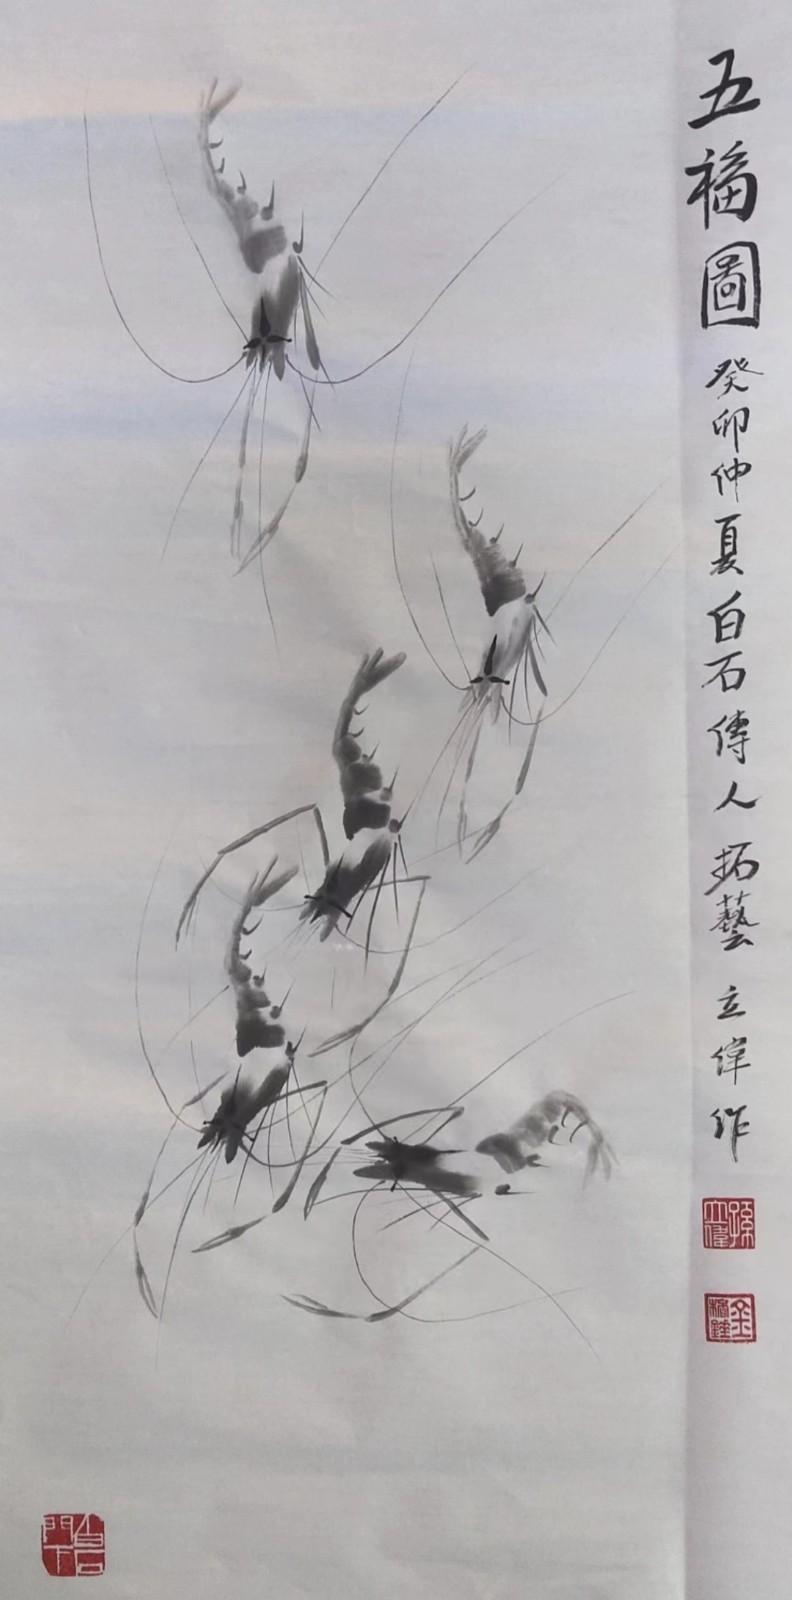 五福圖 癸卯仲夏白石傳人拓藝 立偉作
孫立偉
白石門下